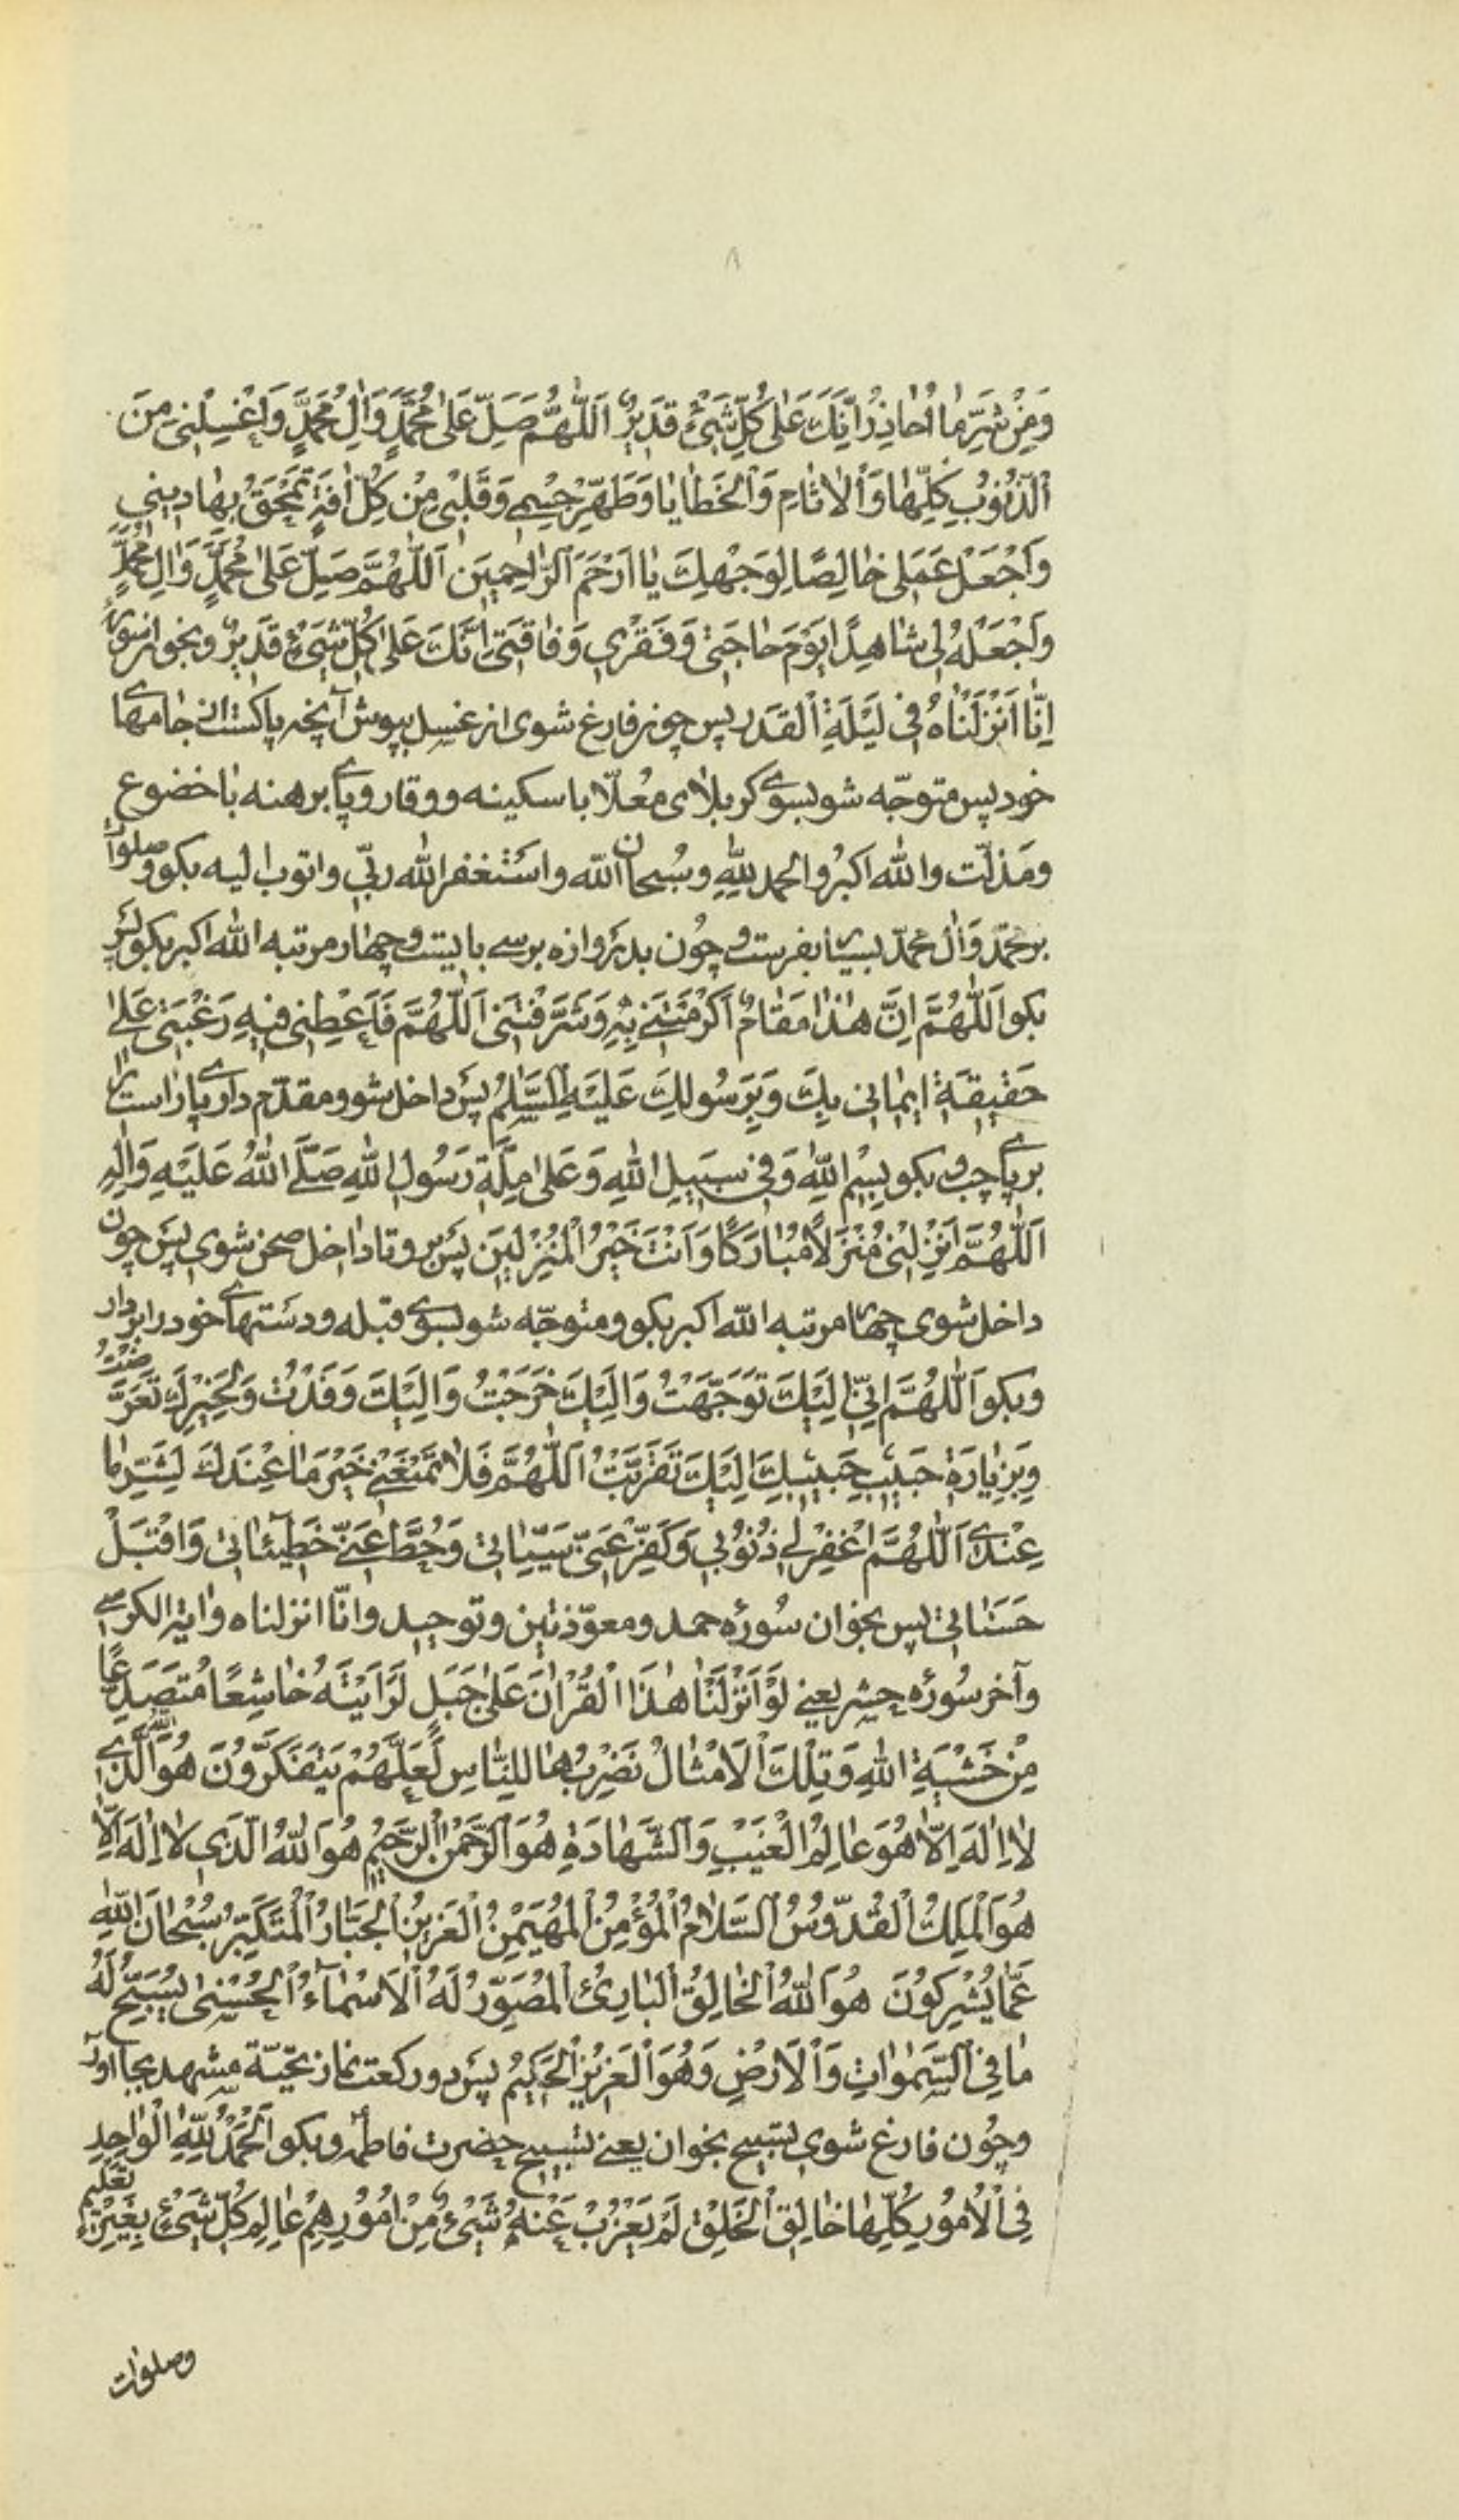 ۸
وَمِنْ شَرِّ مٰا اُحٰاذِرُ اِنَّكَ عَلىٰ كُلِّ شَيْئٍ قَدِيرٌ اَللّٰهُمَّ صَلِّ عَلىٰ مُحَمَّدٍ وَاٰلِ مُحَمَّدٍ وَاغْسِلْنِى مِنَ
الذُّنُوبِ كُلِّهٰا وَالْاٰثٰامِ وَالْخَطٰايٰا وَطَهِّرْ جِسْمِى وَقَلْبِى مِنْ كُلِّ اٰفَةٍ تَمْحَقُ بِهٰا دِينِى
وَاجْعَلْ عَمَلِى خٰالِصًا لِوَجْهِكَ يٰا اَرْحَمَ الرّٰاحِمِينَ اَللّٰهُمَّ صَلِّ عَلىٰ مُحَمَّدٍ وَاٰلِ مُحَمَّدٍ
وَاجْعَلْهُ لِى شٰاهِدًا يَوْمَ حٰاجَتِى وَفَقْرِى وَفٰاقَتِى اِنَّكَ عَلىٰ كُلِّ شَيْئٍ قَدِيرٌ وبخوان سورهٔ
اِنّٰا اَنْزَلْنٰاهُ فِى لَيْلَةِ الْقَدْرِ پس چون فارغ شوى از غسل بپوش آنچه پاكست از جامهاى
خود پس متوجّه شو بسوى كربلاى معُلّا با سكينه و وقار و پاى برهنه با خضوع
ومَذلّت والله اكبرُ والحمد للهِ وسُبحان الله واَستغفر الله ربّى واتوب اليه بكو وصلوات
بر محمّد وَاٰل محمّد بسيار بفرست و چون بدَروازه برسى بايست و چهار مرتبه الله اكبر بكو پَس
بكو اَللّٰهُمَّ اِنَّ هٰذٰا مَقٰامٌ اَكْرَمْتَنِى بِهِ وَشَرَّفْتَنِى اَللّٰهُمَّ فَاَعْطِنِى فِيهِ رَغْبَتِى عَلىٰ
حَقِيقَةِ ايمٰانِى بِكَ وَبِرَسُولِكَ عَلَيْهِ السَّلٰمُ پَس داخل شو و مقدّم دار پاى راست را
بر پاى چپ و بكو بِسْمِ اللّٰهِ وَفِى سَبِيلِ اللّٰهِ وَعَلىٰ مِلَّةِ رَسُولِ اللّٰهِ صَلَّى اللّٰهُ عَلَيْهِ وَاٰلِهِ
اَللّٰهُمَّ اَنْزِلْنِى مُنْزَلاً مُبٰارَكًا وَاَنْتَ خَيْرُ الْمُنْزِلِينَ پَس برو تا داخل صحن شوى پَس چون
داخل شوى چهار مرتبه الله اكبر بكو و متوجّه شو بسوى قبله و دستهاى خود را بردار
و بكو اَللّٰهُمَّ اِنِّى اِلَيْكَ تَوَجَّهْتُ وَاِلَيْكَ خَرَجْتُ وَاِلَيْكَ وَفَدْتُ وَلِخَيْرِكَ تَعَرَّضْتُ
وَبِزِيٰارَةِ حَبِيبِ حَبِيبِكَ اِلَيْكَ تَقَرَّبْتُ اَللّٰهُمَّ فَلاٰ تَمْنَعْنِى خَيْرَ مٰا عِنْدَكَ لِشَرِّ مٰا
عِنْدِى اَللّٰهُمَّ اغْفِرْ لِى ذُنُوبِى وَكَفِّرْ عَنِّى سَيِّئٰاتِى وَحُطَّ عَنِّى خَطِيئٰاتِى وَاقْبَلْ
حَسَنٰاتِى پس بخوان سُورهٔ حمد و معوّذتين و توحيد وانّا انزلناه وآية الكرسى
وآخر سُورهٔ حشر يعنى لَوْ اَنْزَلْنٰا هٰذَا الْقُرْاٰنَ عَلىٰ جَبَلٍ لَرَاَيْتَهُ خٰاشِعًا مُتَصَدِّعًا
مِنْ خَشْيَةِ اللّٰهِ وَتِلْكَ الْاَمْثٰالُ نَضْرِبُهٰا لِلنّٰاسِ لَعَلَّهُمْ يَتَفَكَّرُونَ هُوَ اللّٰهُ الَّذِى
لاٰ اِلٰهَ اِلّٰا هُوَ عٰالِمُ الْغَيْبِ وَالشَّهٰادَةِ هُوَ الرَّحْمٰنُ الرَّحِيمُ هُوَ اللّٰهُ الَّذِى لاٰ اِلٰهَ اِلّٰا
هُوَ الْمَلِكُ الْقُدُّوسُ السَّلاٰمُ الْمُؤْمِنُ الْمُهَيْمِنُ الْعَزِيزُ الْجَبّٰارُ الْمُتَكَبِّرُ سُبْحٰانَ اللّٰهِ
عَمّٰا يُشْرِكُونَ هُوَ اللّٰهُ الْخٰالِقُ الْبٰارِئُ الْمُصَوِّرُ لَهُ الْاَسْمٰاءُ الْحُسْنىٰ يُسَبِّحُ لَهُ
مٰا فِى السَّمٰوٰاتِ وَالْاَرْضِ وَهُوَ الْعَزِيزُ الْحَكِيمُ پَس دو ركعت نماز تحيّة مشهد بجا آور
و چُون فارغ شوى تسبيح بخوان يعنى تسبيح حضرت فاطمه و بكو اَلْحَمْدُ لِلّٰهِ الْوٰاحِدِ
فِى الْاُمُورِ كُلِّهٰا خٰالِقِ الْخَلْقِ لَمْ يَعْزُبْ عَنْهُ شَيْئٌ مِنْ اُمُورِهِمْ عٰالِمِ كُلِّ شَيْئٍ بِغَيْرِ تَعْلِيمٍ
وصلوات